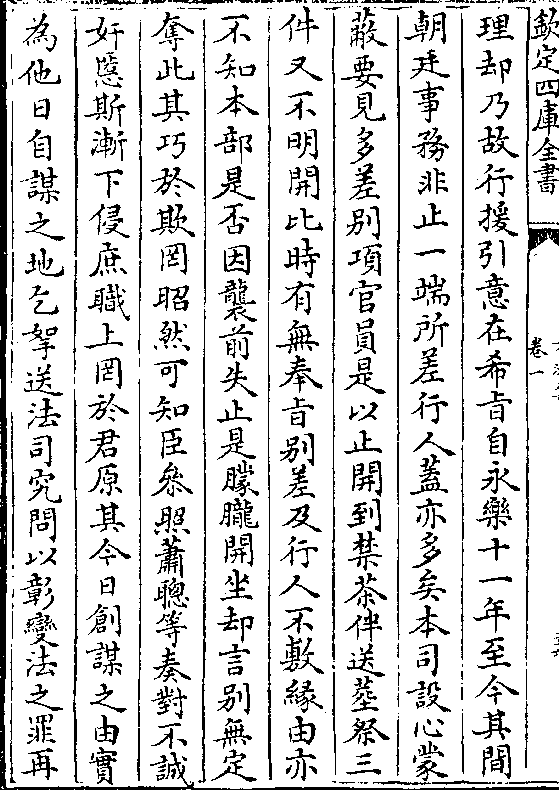 欽定四庫全書
卷一
理却乃故行援引意在希旨自永樂十一年至今其間
朝廷事務非止一端所差行人蓋亦多矣本司設心蒙
蔽要見多差别項官員是以止開到禁茶伴送塟祭三
件又不明開比時有無奉旨别差及行人不敷緣由亦
不知本部是否因襲前失止是朦朧開坐却言别無定
奪此其巧於欺罔昭然可知臣叅照蕭聰等奏對不誠
奸慝斯漸下侵庶職上罔於君原其今日創謀之由實
為他日自謀之地乞拏送法司究問以彰變法之罪再